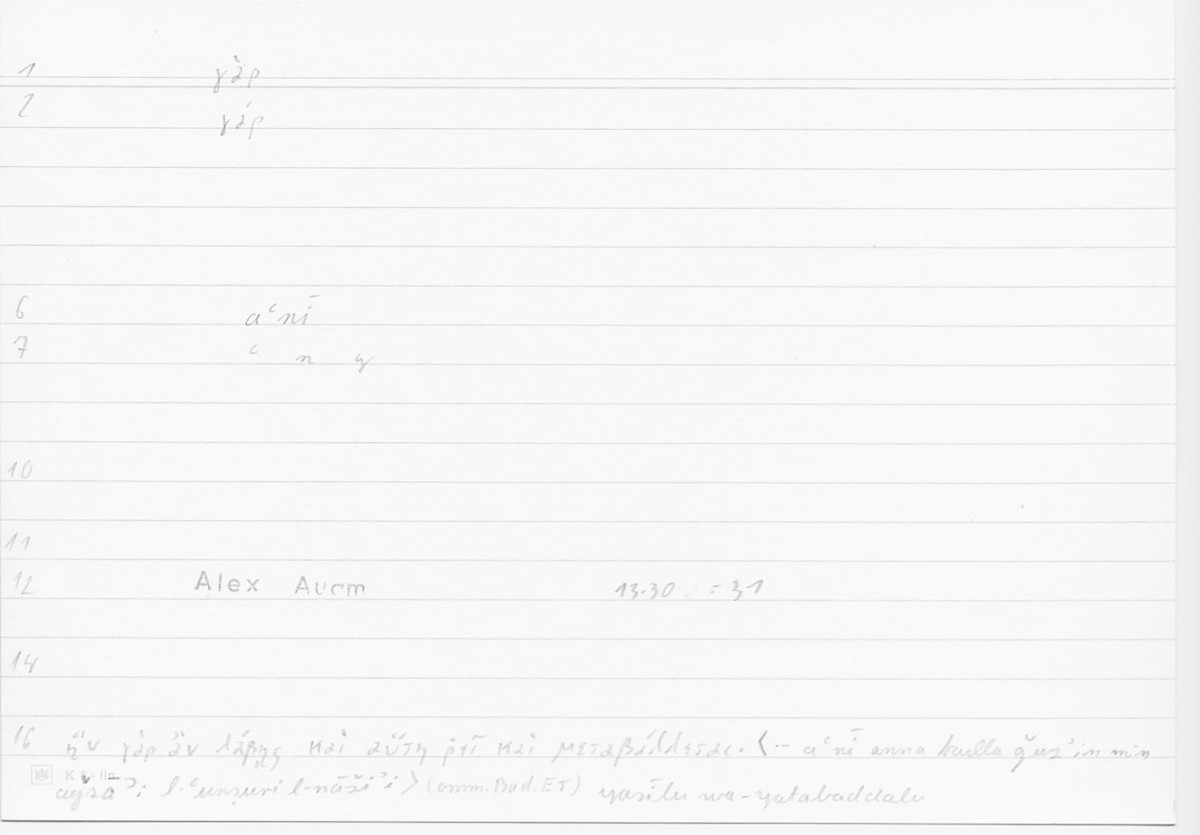 1 γὰρ
2 γάρ
6 aʿnī
7 ʿ n y
10
11
12 Alex Aucm 13.30 = 31
14
16 ἣν γὰρ ἂν λάβῃς καὶ αὕτη ῥεῖ καὶ μεταβάλλεται. ⟨... aʿnī anna kulla ǧuzʾin min
aǧzāʾi l-ʿunṣuri l-nāšiʾi⟩ (omm. Bad. ET) yasīlu wa-yatabaddalu